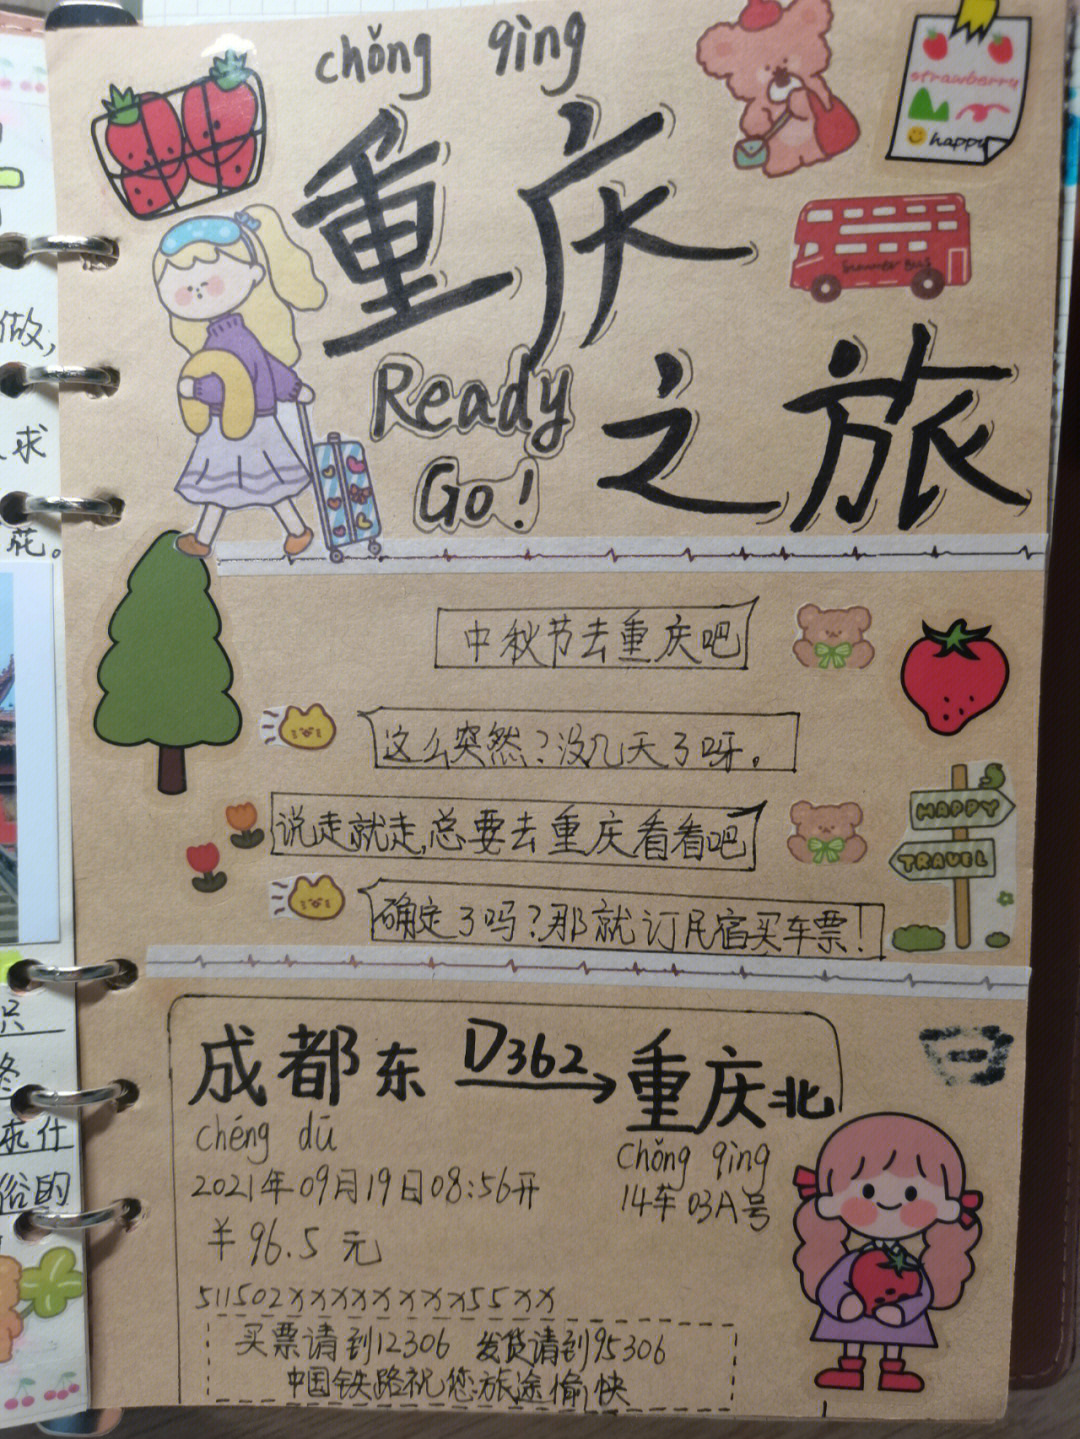 chǒng qìng
重庆
之旅
Ready
Go!
strawberry
happy
Summer Bus
中秋节去重庆吧
这么突然?没几天了呀。
说走就走,总要去重庆看看吧
确定了吗?那就订民宿买车票!
HAPPY
TRAVEL
成都东 D362 重庆北
chéng dū
chǒng qìng
2021年09月19日08:56开
14车03A号
¥96.5元
511502XXXXXXXX55XX
买票请到12306 发货请到95306
中国铁路祝您旅途愉快
做,
求
花。
求仕
俗的